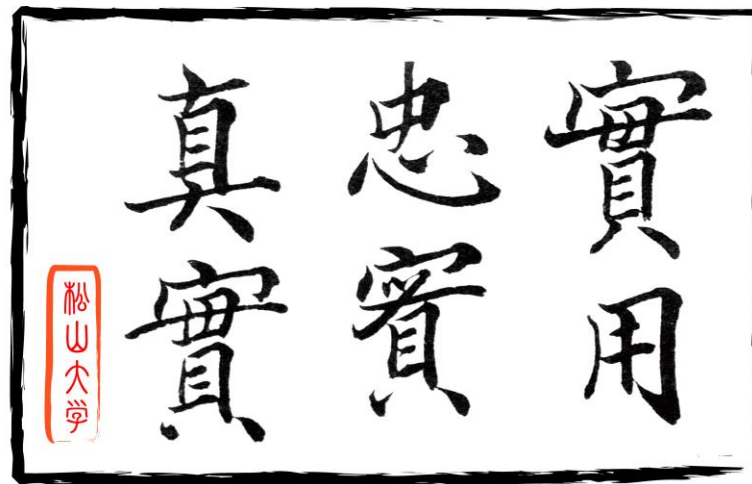 實用
忠實
真實
松山大学